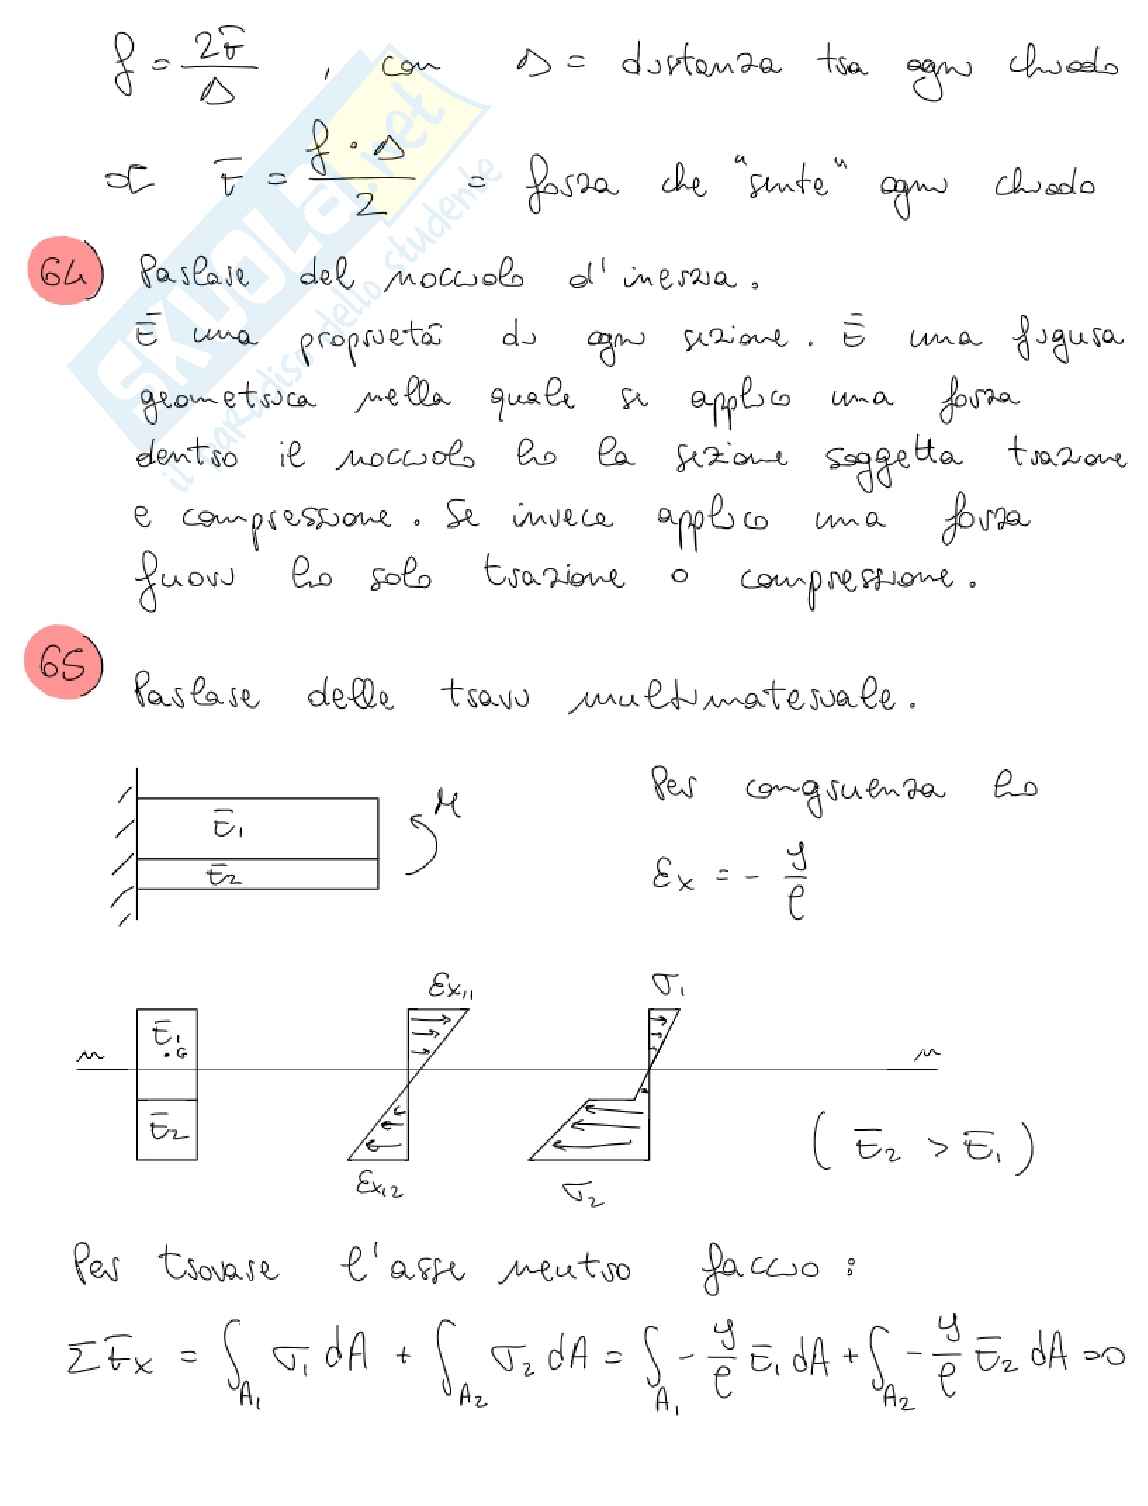 f = 2F/Δ , con Δ = distanza tra ogni chiodo
∝ F = f · Δ / 2 = forza che "sente" ogni chiodo
64) Parlare del nocciolo d'inerzia.
È una proprietà di ogni sezione. È una figura
geometrica nella quale se applico una forza
dentro il nocciolo ho la sezione soggetta trazione
e compressione. Se invece applico una forza
fuori ho solo trazione o compressione.
65) Parlare delle travi multimateriale.
Per congruenza ho
E1 M
E2
εx = - y/ρ
εx,1 σ1
E1
.G
n n
E2
(E2 > E1)
εx,2 σ2
Per trovare l'asse neutro faccio:
ΣFx = ∫A1 σ1 dA + ∫A2 σ2 dA = ∫A1 - y/ρ E1 dA + ∫A2 - y/ρ E2 dA = 0
SKUOLA.net
il paradiso dello studente